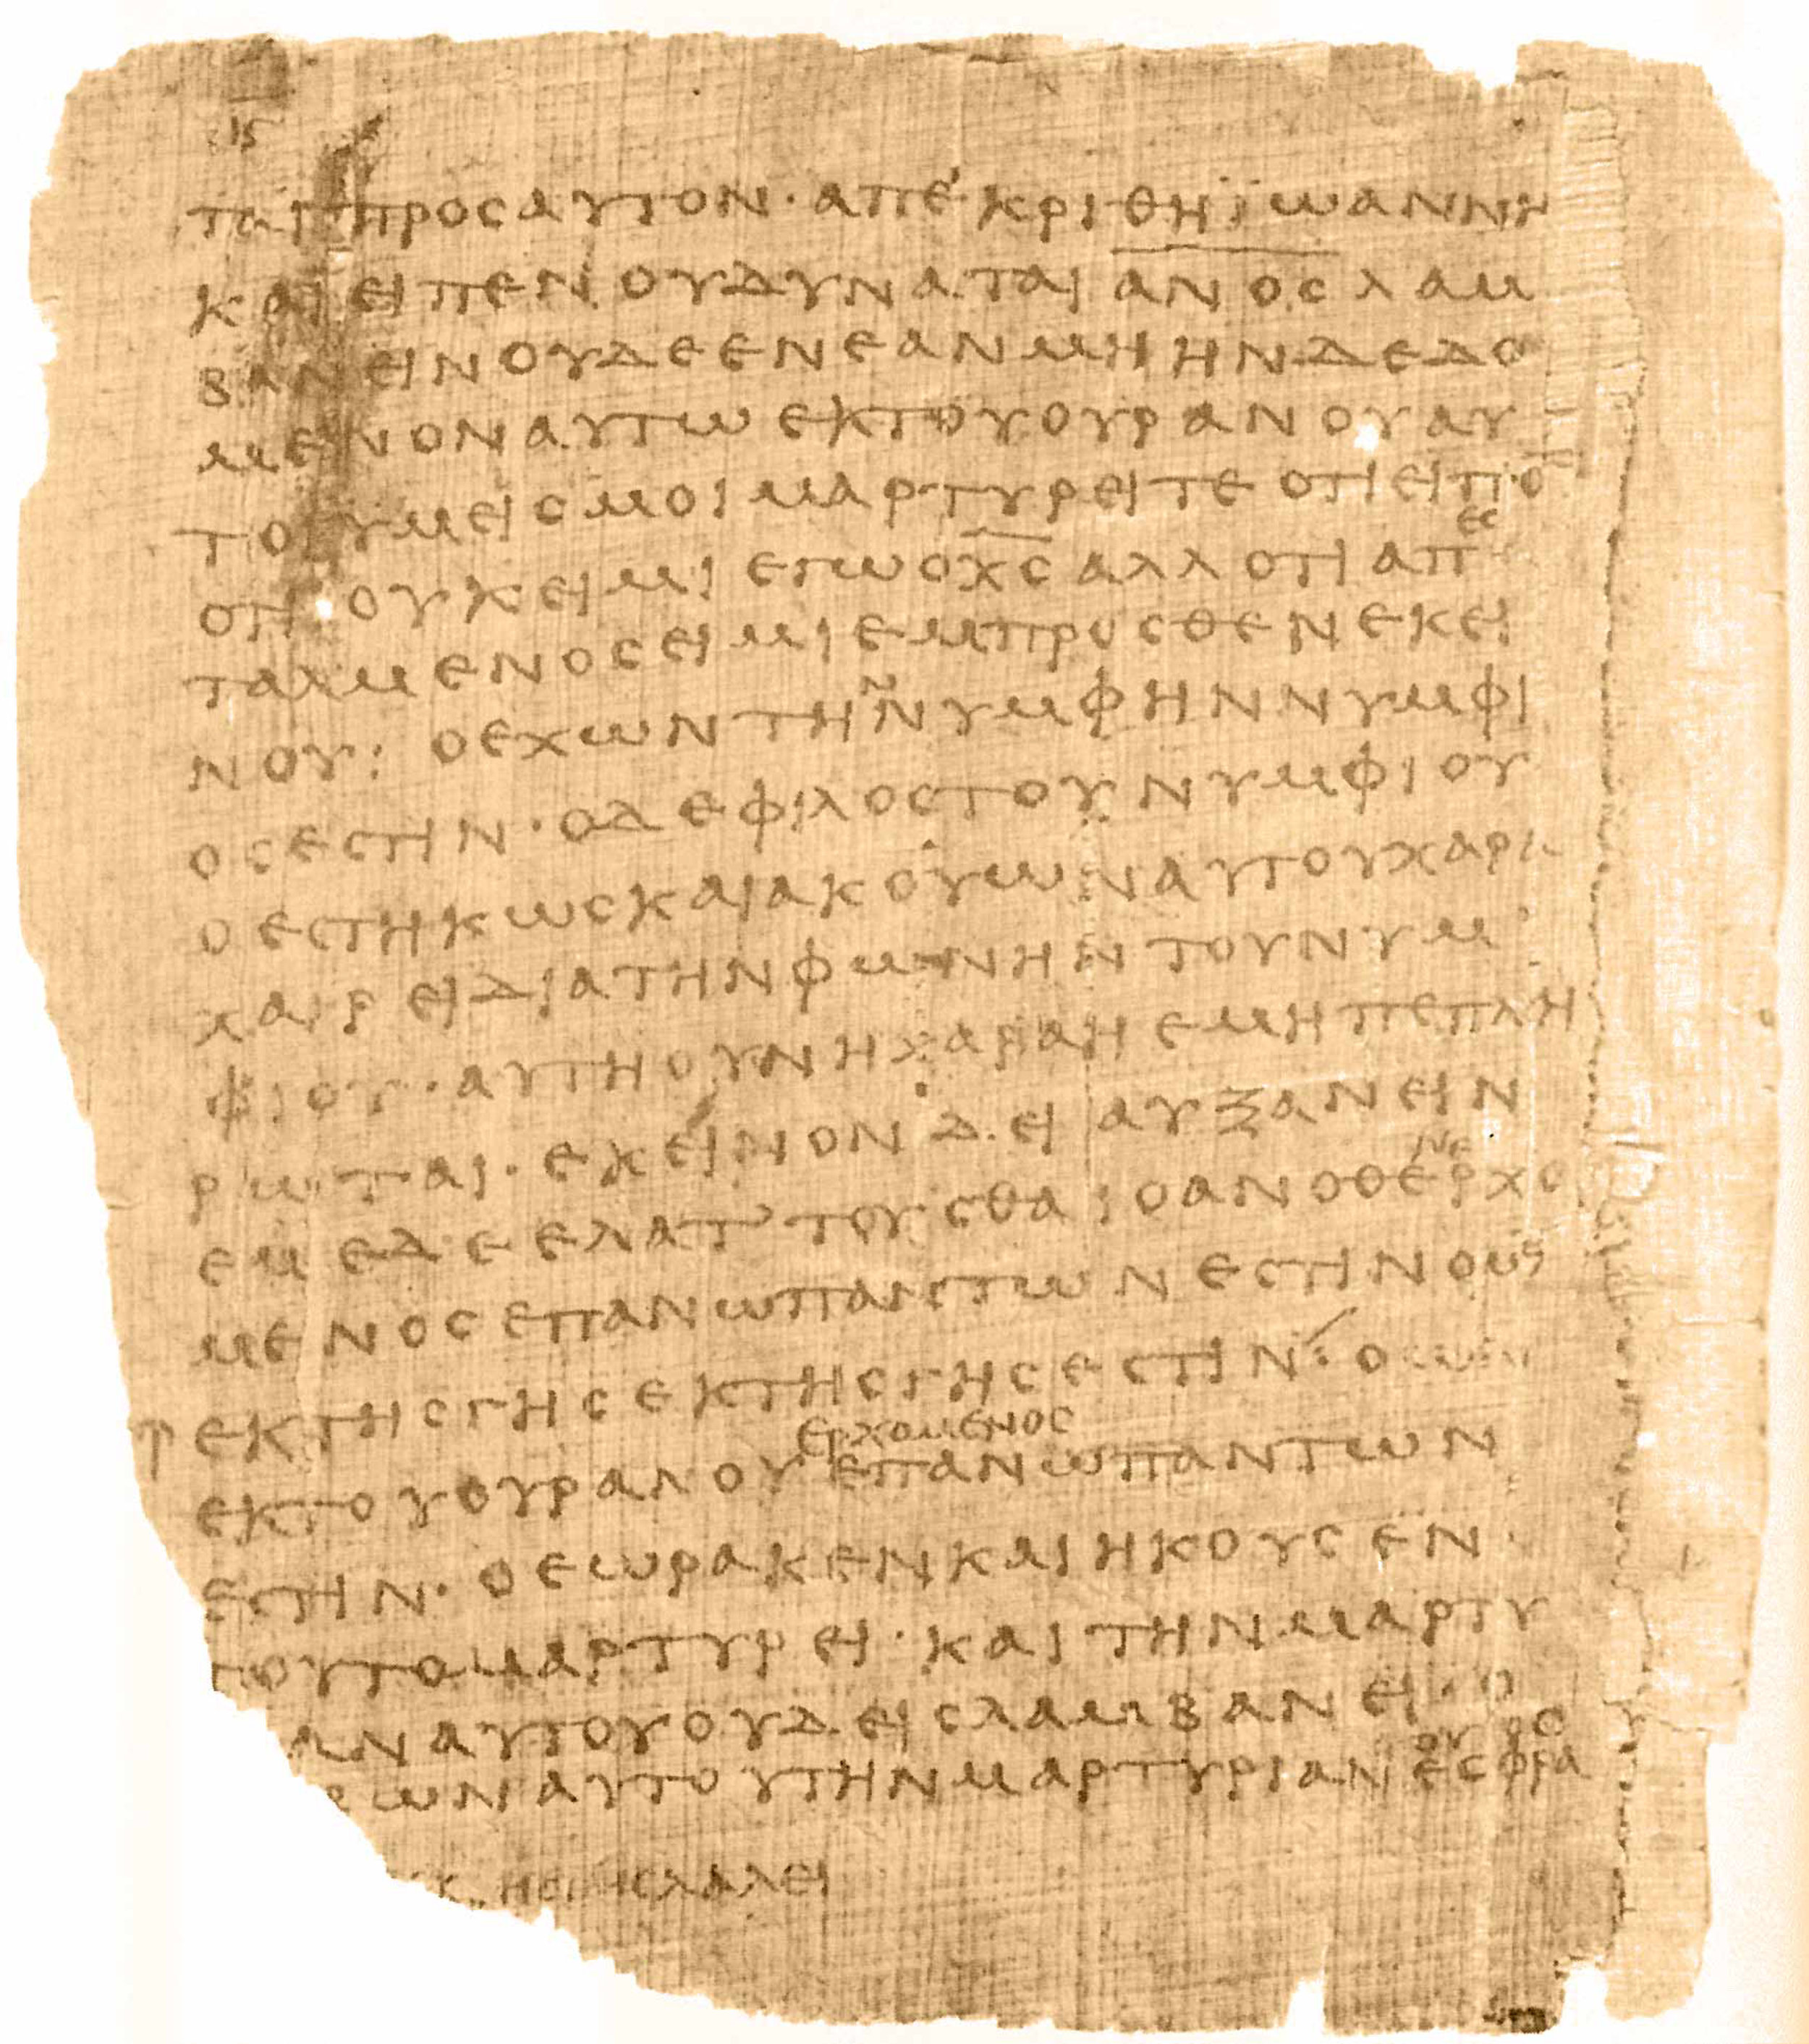 ις
ται προς αυτον · απεκριθη ϊωαννη
και ειπεν ου δυναται α̅ν̅ο̅ς̅ λαμ
βανειν ουδε εν εαν μη ην δεδο
μενον αυτω εκ του ουρανου αυ
το υμεις μοι μαρτυρειτε οτι ειπο̅
οτι ουκ ειμι εγω ο χ̅ς̅ αλλ οτι απ`ες´
ταλμενος ειμι εμπροσθεν εκει
νου : ο εχων τη`ν´ νυμφην νυμφι
ος εστιν · ο δε φιλος του νυμφιου
ο εστηκως και ακουων αυτου χαρα
χαιρει δια την φωνην του νυμ
φιου · αυτη ουν η χαρα η εμη πεπλη
ρωται · εκεινον δει αυξανειν
εμε δε ελαττουσθαι ο ανοθε`ν ε´ρχο
μενος επανω παντων εστιν ο ως
εκ της γης εκ της γης εστιν · ο
εκ του ουρανου `ερχομενος´ επανω παντων
εστιν · ο εωρακεν και ηκουσεν
τουτο μαρτυρει · και την μαρτυ
αν αυτου ουδεις λαμβανει · ο
ων αυτου την μαρτυριαν `ου´ εσφρα
λαλει